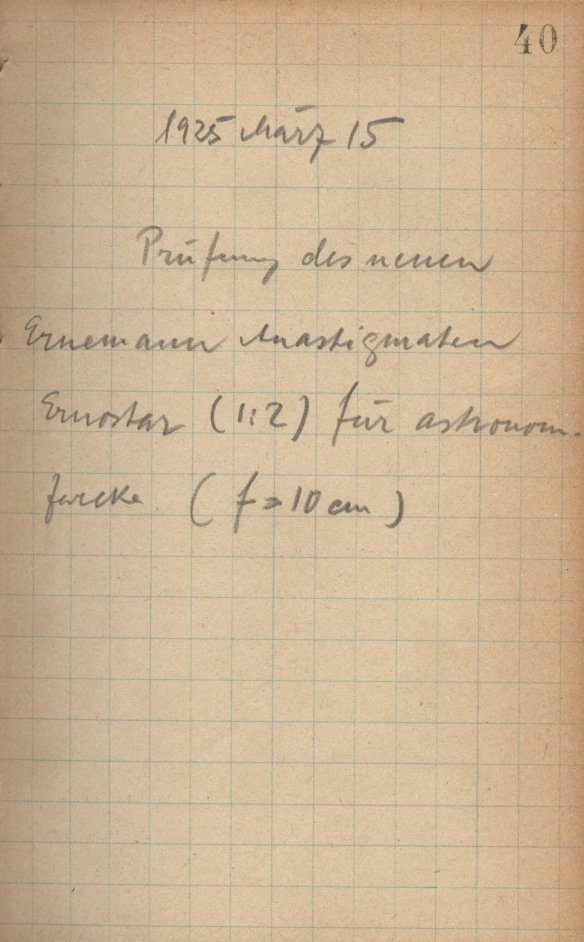 40
1925 März 15
Prüfung des neuen
Ernemann Anastigmaten
Ernostar (1:2) für astronom.
Zwecke (f = 10 cm)